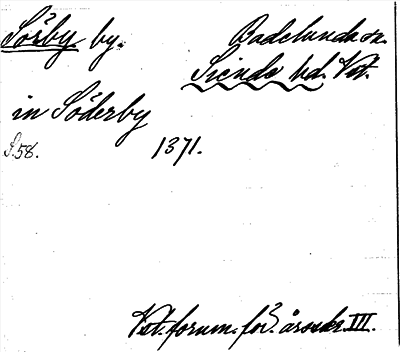 Sörby by. Badelunda sn.
Siende hd. Vst.
in Söderby
S. 58. 1371.
Vst. fornm. för:s årsskr. III.